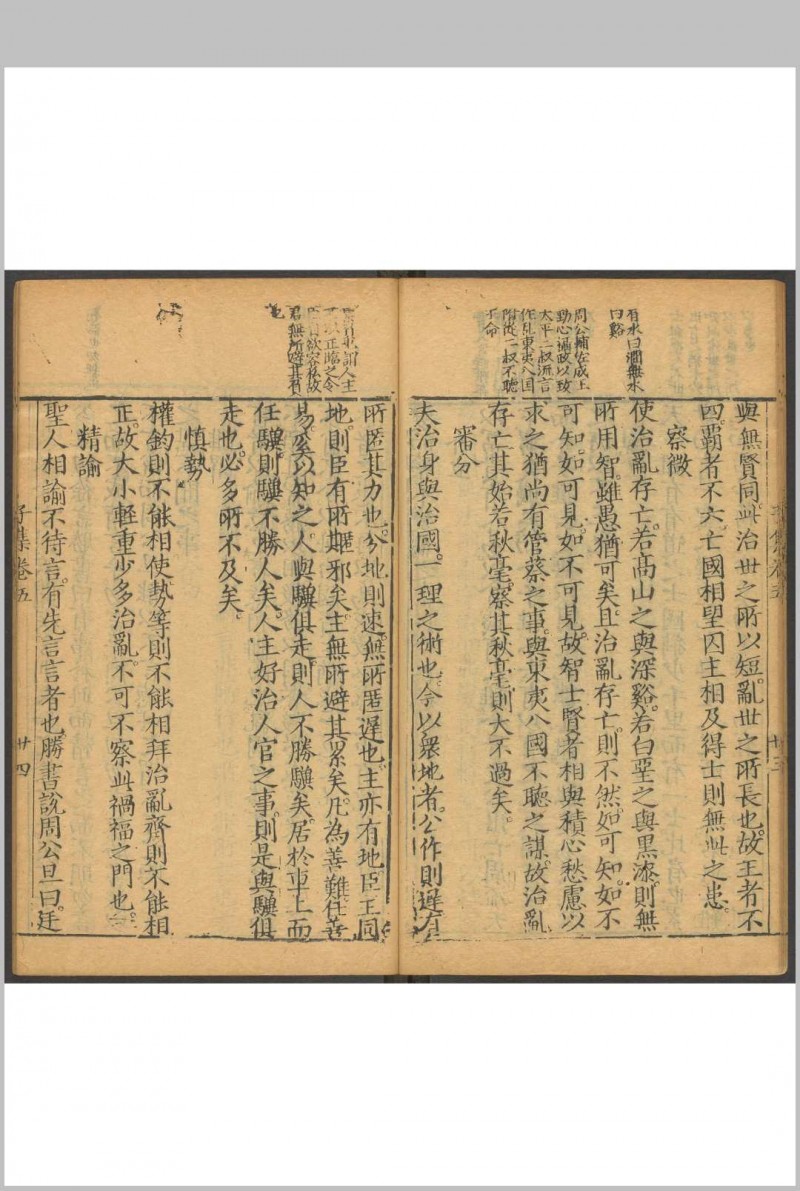 有水曰澗無水
曰谿
周公輔佐成王
勤心滿政以致
太平二叔流言
作乱東夷八国
附從二叔不聽
王命
與無賢同此治世之所以短亂世之所長也故王者不
四覇者不六亡國相望囚主相及得士則無此之患
察微
使治亂存亡若高山之與深谿若白堊之與黒漆則無
所用智雖愚猶可矣且治亂存亡則不然如可知如不
可知如可見如不可見故智士賢者相與積心愁慮以
求之猶尚有管蔡之事與東夷八國不聽之謀故治亂
存亡其始若秋毫察其秋毫則大不過矣
審分
夫治身與治國一理之術也今以衆地者公作則遅有
子集卷五
廿三
人主
正臨之令
欲容私故
君無所避其有
也
所匿其力也分地則速無所匿遅也主亦有地臣王同
地則臣有所匿邪矣主無所避其累矣凡為善難任善
易奚以知之人與驥俱走則人不勝驥矣居於車上而
任驥則驥不勝人矣人主好治人官之事則是與驥俱
走也必多所不及矣
慎勢
權鈞則不能相使勢等則不能相拜治亂齊則不能相
正故大小軽重少多治亂不可不察此禍福之門也
精諭
聖人相諭不待言有先言言者也勝書説周公旦曰廷
子集卷五
廿四